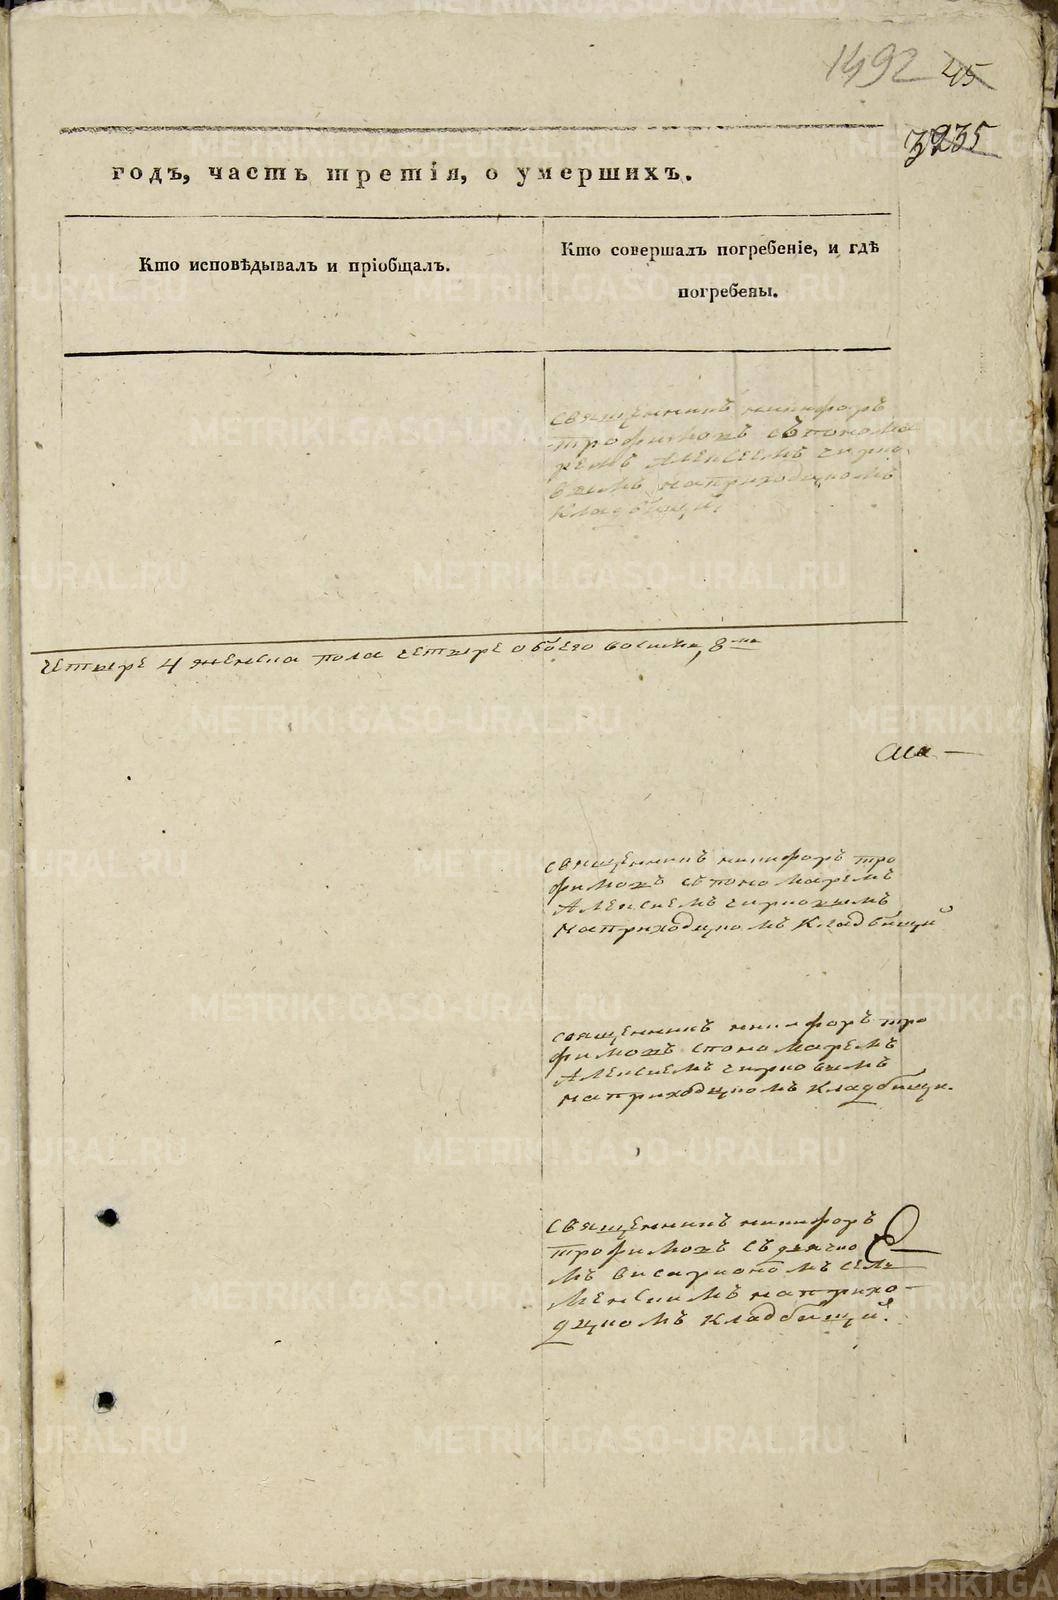 1492 45
3235
годъ, часть третія, о умершихъ.
Кто исповѣдывалъ и пріобщалъ.
Кто совершалъ погребеніе, и гдѣ
погребены.
священникъ никифоръ
трофимовъ съ понома
ремъ Алексеемъ
вымъ наприходцкомъ
кладбищи
четыре 4 женска пола четыре обоего восимь, 8
священникъ никифоръ тро
фимовъ съ пономаремъ
Алексиемъ
наприходцкомъ кладбищи
священникъ никифоръ тро
фимовъ спономаремъ
Алексиемъ
наприходцкомъ кладбищи.
священникъ никифоръ
трофимовъ съ дьячко
мъ висариономъ
наприхо
дцкомъ кладбищи.
METRIKI.GASO-URAL.RU